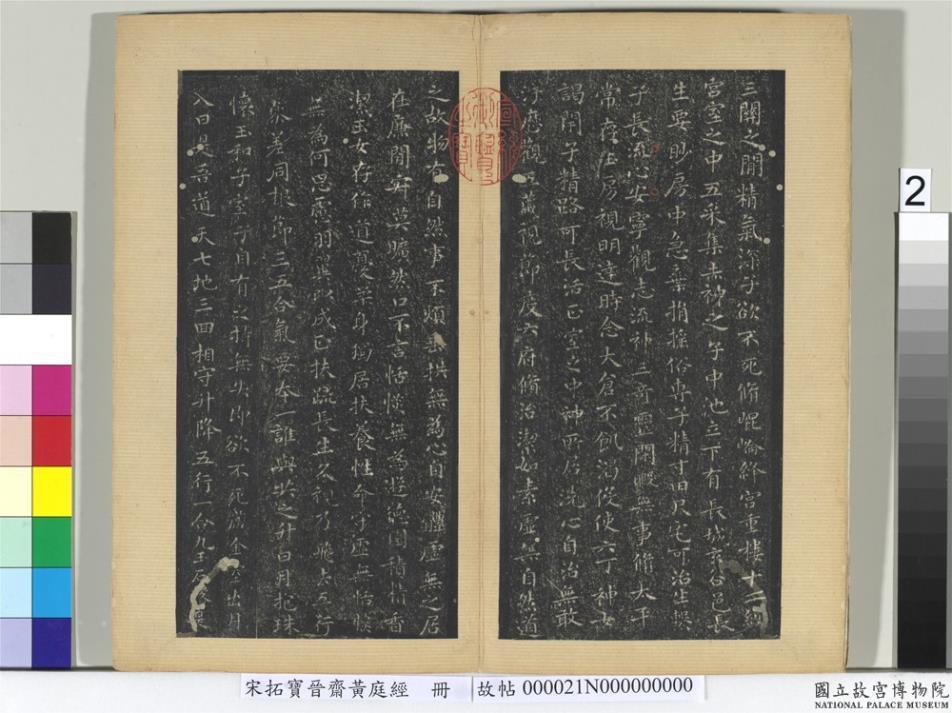 三關之間精氣深子欲不死脩崐崘絳宮重樓十二級
宮室之中五采集赤神之子中池立下有長城玄谷邑長
生要眇房中急棄捐搖俗專子精寸田尺宅可治生繫
子長流心安寧觀志流神三奇靈閑暇無事脩太平
常存玉房視明達時念大倉不飢渴役使六丁神女
謁閉子精路可長活正室之中神所居洗心自治無敢
汙歷觀五藏視節度六府脩治潔如素虛無自然道
之故物有自然事不煩垂拱無為心自安體虛無之居
在廉間寂莫曠然口不言恬惔無為遊德園積精香
潔玉女存作道憂柔身獨居扶養性命守虛無恬惔
無為何思慮羽翼以成正扶疏長生久視乃飛去五行
參差同根節三五合氣要本一誰與共之升日月抱珠
懷玉和子室子自有之持無失即欲不死藏金室出月
入日是吾道天七地三回相守升降五行一合九玉石落落
2
宋拓寶晉齋黃庭經 冊 故帖 000021N000000000
國立故宮博物院
NATIONAL PALACE MUSEUM